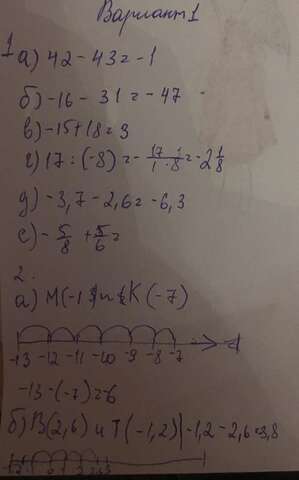 Вариант 1
1 а) 42 - 43 = -1
б) -16 - 31 = -47
в) -15 + 18 = 3
г) 17 : (-8) = - 17 · 1 / 1 · 8 = -2 1/8
д) -3,7 - 2,6 = -6,3
е) - 5/8 + 5/6 =
2.
а) М(-13) и К(-7)
-13 -12 -11 -10 -9 -8 -7
-13 - (-7) = -6
б) В(2,6) и Т(-1,2) |-1,2 - 2,6 = 3,8